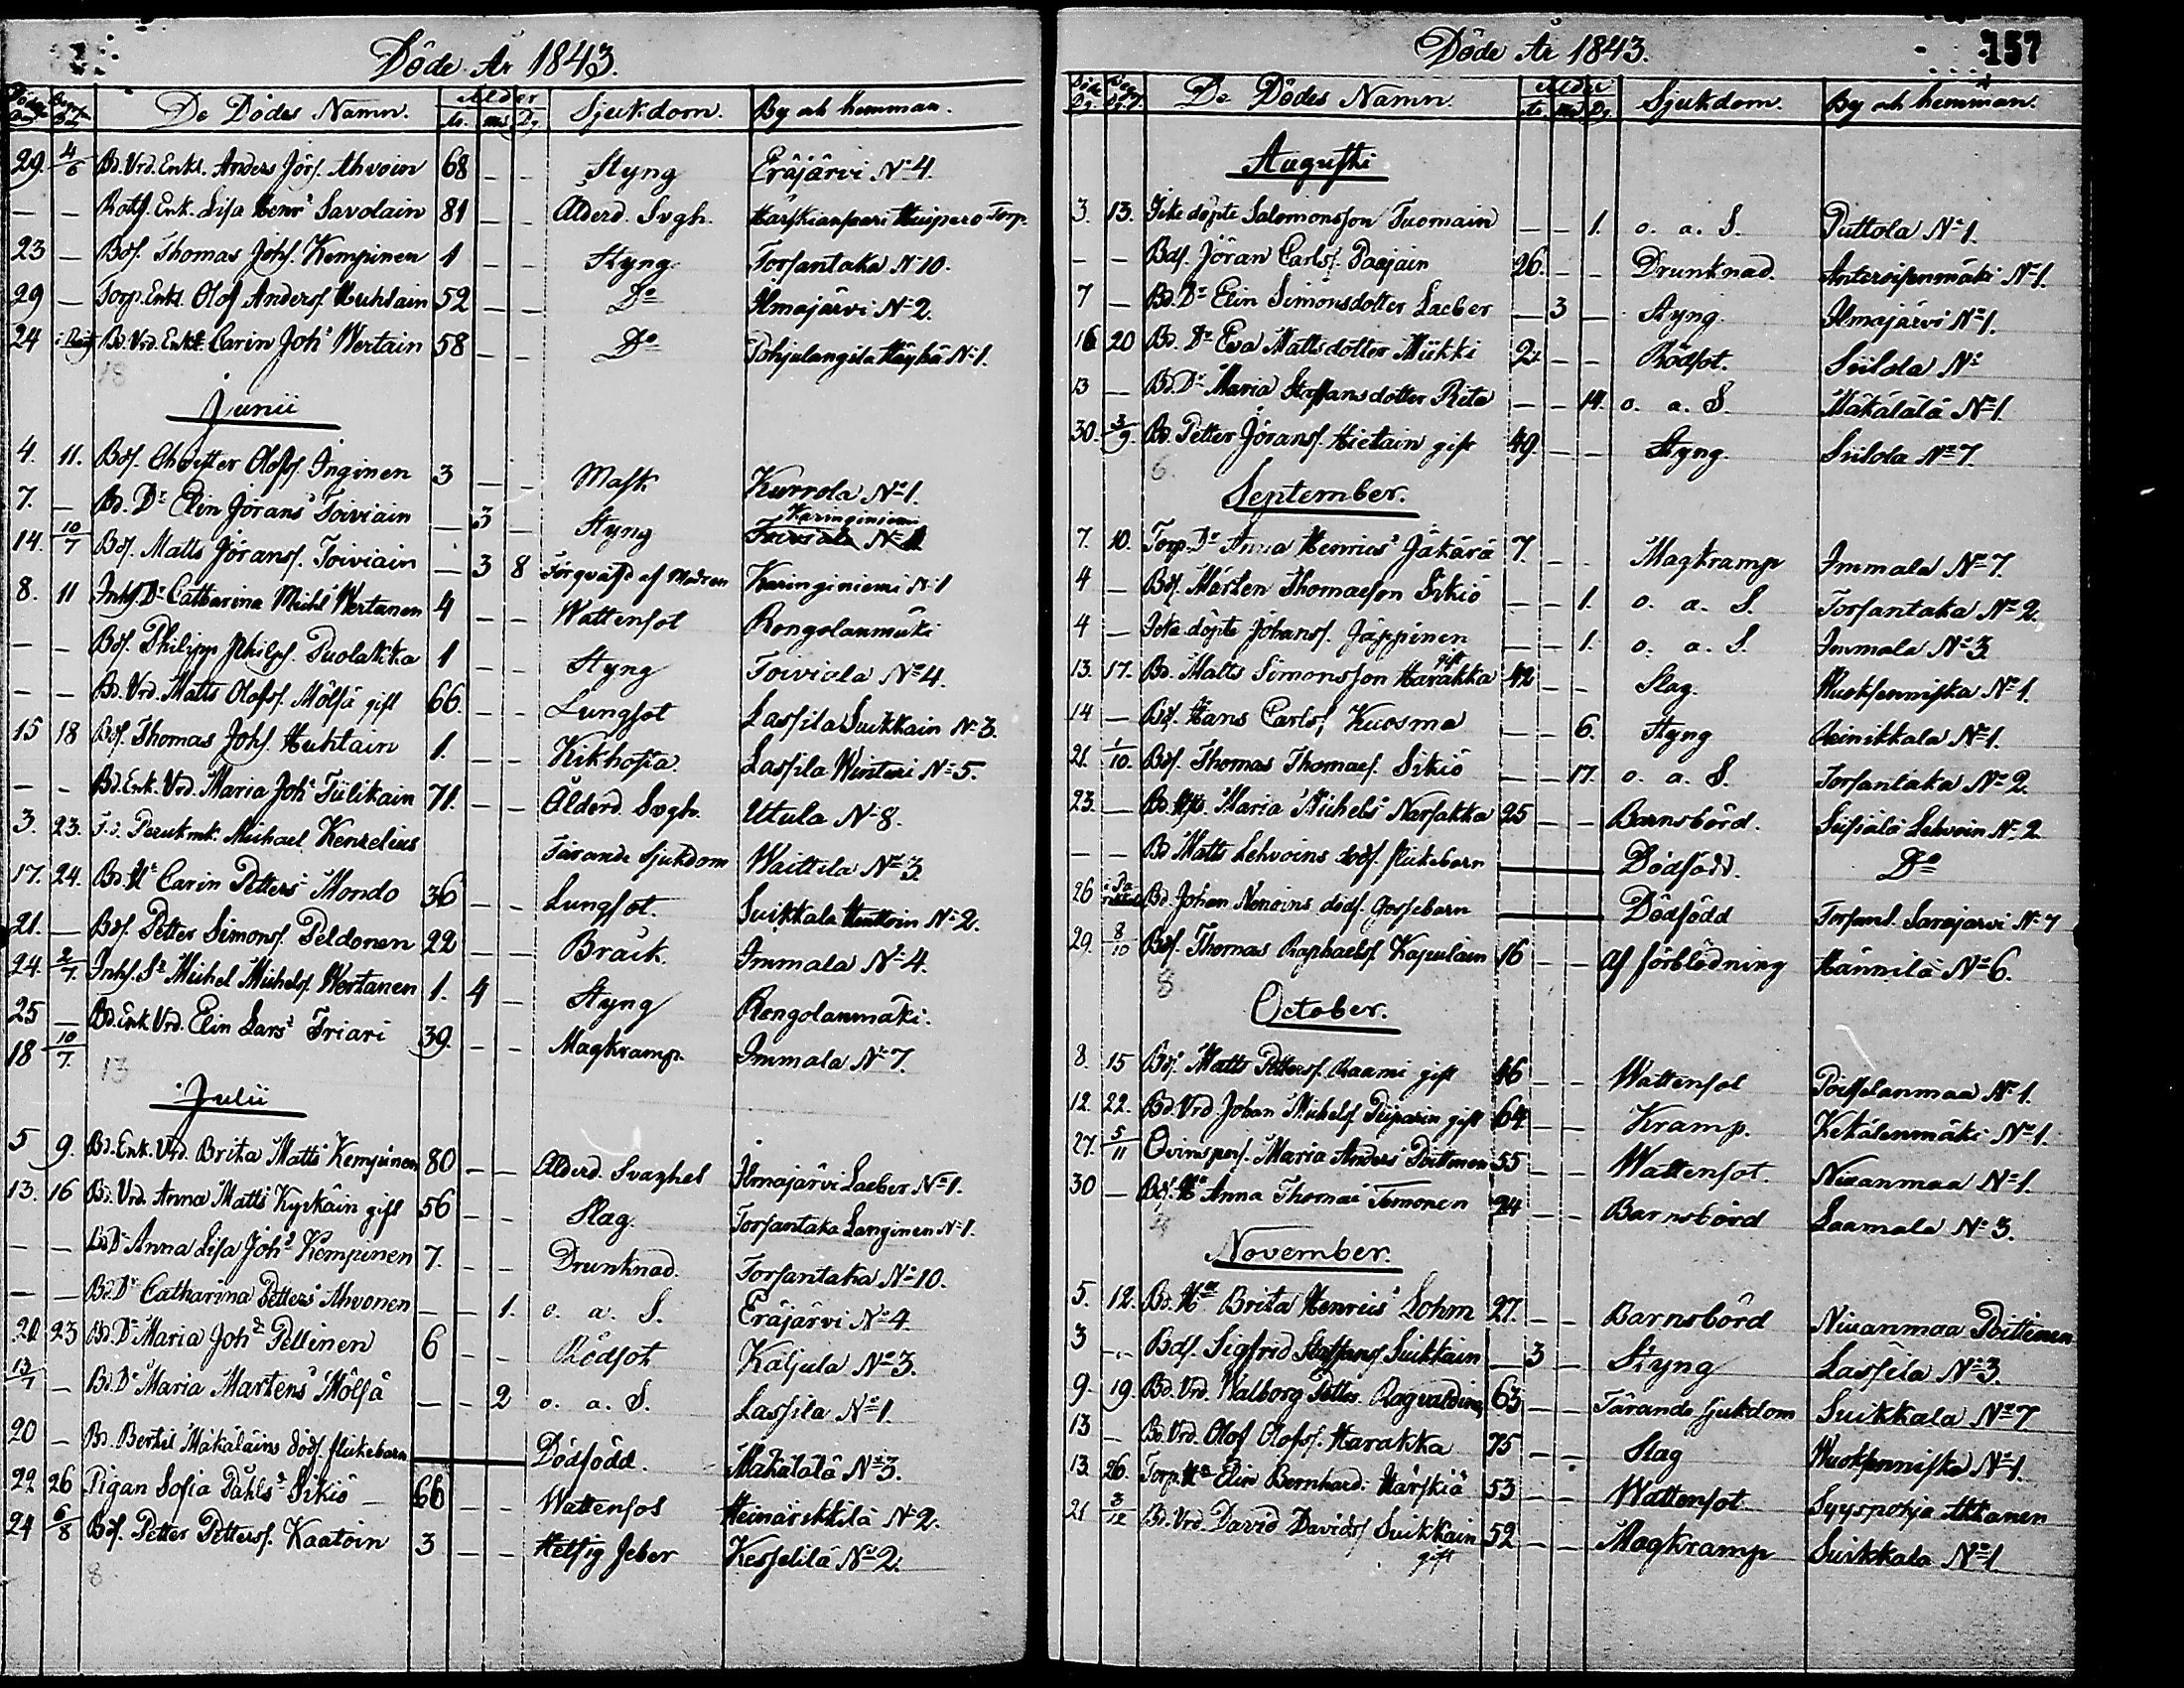 Döde År 1843.
Döde Dag Begr. Dag De Dödes Namn. Ålder år. md Dg Sjukdom. By och hemman.
29. 4/6 Bd. Vrd. Enkl. Anders Jörs. Ahvoin 68 — — Styng Eräjärvi No 4.
— — Enk. Lisa Henrs Savolain 81 — — Ålderd. Svgh. Torp.
23 — Bds. Thomas Johs. Kempinen 1 — — Styng Torsantaka N 10.
29 — Torp. Enkl. Olof Anderss. Huhtain 52 — — Do Ilmajärvi No 2.
24 — Bd. Vrd. Enk. Carin Johs Wertain 58 — — Do Pohjalangila Häyhä No 1.
18
Junii
4. 11. Bds. Christer Olofss. Inginen 3 — — Mask Kurrola No 1.
7. — Bd. Dr Elin Jörans Toiviain — 3 — Styng Karinginiemi Toiviala No 1
14. 10/7 Bds. Matts Jörans. Toiviain — 3 8 Förqväfd af Modren Karinginiemi No 1
8. 11 Inhs. Dr Catharina Michl Wertanen 4 — — Wattensot Rongolanmäki
— — Bds. Philipp Philips. Puolakka 1 — — Styng Toiviala No 4.
— — Bd. Vrd. Matts Olofss. Mölsä gift 66. — — Lungsot Lassila Suikkain No 3.
15 18 Bds. Thomas Johs. Huhtain 1. — — Kikhosta Lassila Winturi No 5.
— — Bd. Enk. Vrd. Maria Johs Tiilikain 71. — — Ålderd. Svgh. Utula N 8.
3. 23. Michael Kenzelius Tärande Sjukdom Waittila No 3.
17. 24. Bd. Hu Carin Petters Mondo 36 — — Lungsot. Suikkala No 2.
21. — Bds. Petter Simonss. Peldonen 22 — — Bråck. Immala No 4.
24. 2/7. Inhs. Sr Michel Michelss. Wertanen 1. 4 — Styng Rongolanmäki.
25 — Bd. Enk. Vrd. Elin Lars Friari 39 — — Magkramp. Immala No 7.
18 10/7
13
Julii
5 9. Bd. Enk. Vrd. Brita Matts Kempinen 80 — — Ålderd. Svaghet Ilmajärvi Laeber No 1.
13. 16 Bd. Vrd. Anna Matts Kyrkäin gift 56 — — Slag. Torsantaka Langinen No 1.
— — Bd Dr Anna Lisa Johs Kempinen 7. — — Drunknad. Torsantaka No 10.
— — Bd. Dr Catharina Petters Ahvonen — — 1. o. a. S. Eräjärvi No 4
20 23 Bd. Dr Maria Johs Pellinen 6 — — Rödsot Käljula No 3.
13/7 — Bd. Dr Maria Martens Mölsä — — 2 o. a. S. Lassila No 1.
20 — Bd. Bertil Mäkäläins döds. flickebarn — Dödfödd. Mäkälälä No 3.
22 26 Pigan Sofia Påhls Sikiö 66 — — Wattensot Heinärikkilä N 2.
24 6/8 Bds. Petter Petterss. Kaatoin 3 — — Hetsig feber Kesselilä No 2.
8
157
Döde År 1843.
Döde Dg. Begr. Dg. De Dödes Namn. Ålder år. md Dg. Sjukdom. By och hemman.
Augusti
3. 13. Icke döpte Salomonsson Tuomain — — 1. o. a. S. Puttola No 1.
— — Bds. Jöran Carlss. Paajain 26. — — Drunknad. No 1.
7 — Bd. Dr Elin Simonsdotter Laeber — 3 — Styng Ilmajärvi No 1.
16 20 Bd. Dr Eva Mattsdotter Miikki 2. — — Rödsot. Siilola No
13 — Bd. Dr Maria Staffansdotter Rita — — 14. o. a. S. Mäkälälä No 1.
30. 3/9. Bd. Petter Jöranss. Hietain gift 49. — — Styng. Siilola No 7.
6.
September.
7. 10. Torp. Dr Anna Henrics Jäkärä 7. — — Magkramp Immala No 7.
4 — Bds. Mårten Thomasson Sikiö — — 1. o. a. S. Torsantaka No 2.
4 — Icke döpte Johanss. Jäppinen — — 1. o. a. S. Immala No 3
13. 17. Bd. Matts Simonsson Harakka gift 42 — — Slag. Wuoksenniska No 1.
14 — Bds. Hans Carlss. Kuosma — — 6. Styng Leinikkala No 1.
21. 1/10. Bds. Thomas Thomass. Sikiö — — 17. o. a. S. Torsantaka No 2.
23. — Bd. Maria Michels Narsakka 25 — — Barnsbörd. Siisiälä Lehvoin No 2.
— — Bd Matts Lehvoins döds. flickebarn — Dödfödd. Do
26 Bd. Johan Nonoins döds. gossebarn — Dödfödd Torsant. Sarajärvi No 7
29. 8/10 Bds. Thomas Raphaelss. Kapulain 16 — — Af förblödning Hännilä No 6.
8
October.
8. 15 Bds. Matts Petterss. Raami gift 46 — — Wattensot Poitsilanmaa No 1.
12. 22. Bd. Vrd. Johan Michelss. Piiparin gift 64 — — Kramp. Kekälenmäki No 1.
27. 5/11 Qvinspers. Maria Anders Poittinen 55 — — Wattensot. Niuanmaa No 1.
30 — Bds. Hu Anna Thomas Temonen 24 — — Barnsbörd Laamala No 3.
4
November.
5. 12. Bd. Hu Brita Henrics Lohm 27. — — Barnsbörd Niuanmaa Poittinen
3 — Bds. Sigfrid Staffanss. Suikkain — 3 — Styng Lassila No 3.
9. 19. Bd. Vrd. Walborg Petters. 63 — — Tärande Sjukdom Suikkala No 7.
13 — Bd. Vrd. Olof Olofss. Harakka 75 — — Slag Wuoksenniska No 1.
13. 26. Torp. Hu Elin Bernhard. Härskiä 53 — — Wattensot Syyspohja Akkanen
21 3/12 Bd. Vrd. David Davidss. Suikkain gift 52 — — Magkramp Suikkala No 1